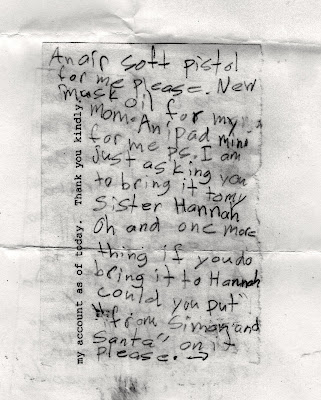 An air soft pistol
for me please. New
musk oil for
mom. An for my
for me ps. I am mini
iPad
just asking you
to bring it to my
sister Hannah
Oh and one more
thing if you do
bring it to Hannah
could you put
"from Simon and
Santa" on it
please. →
my account as of today. Thank you kindly.